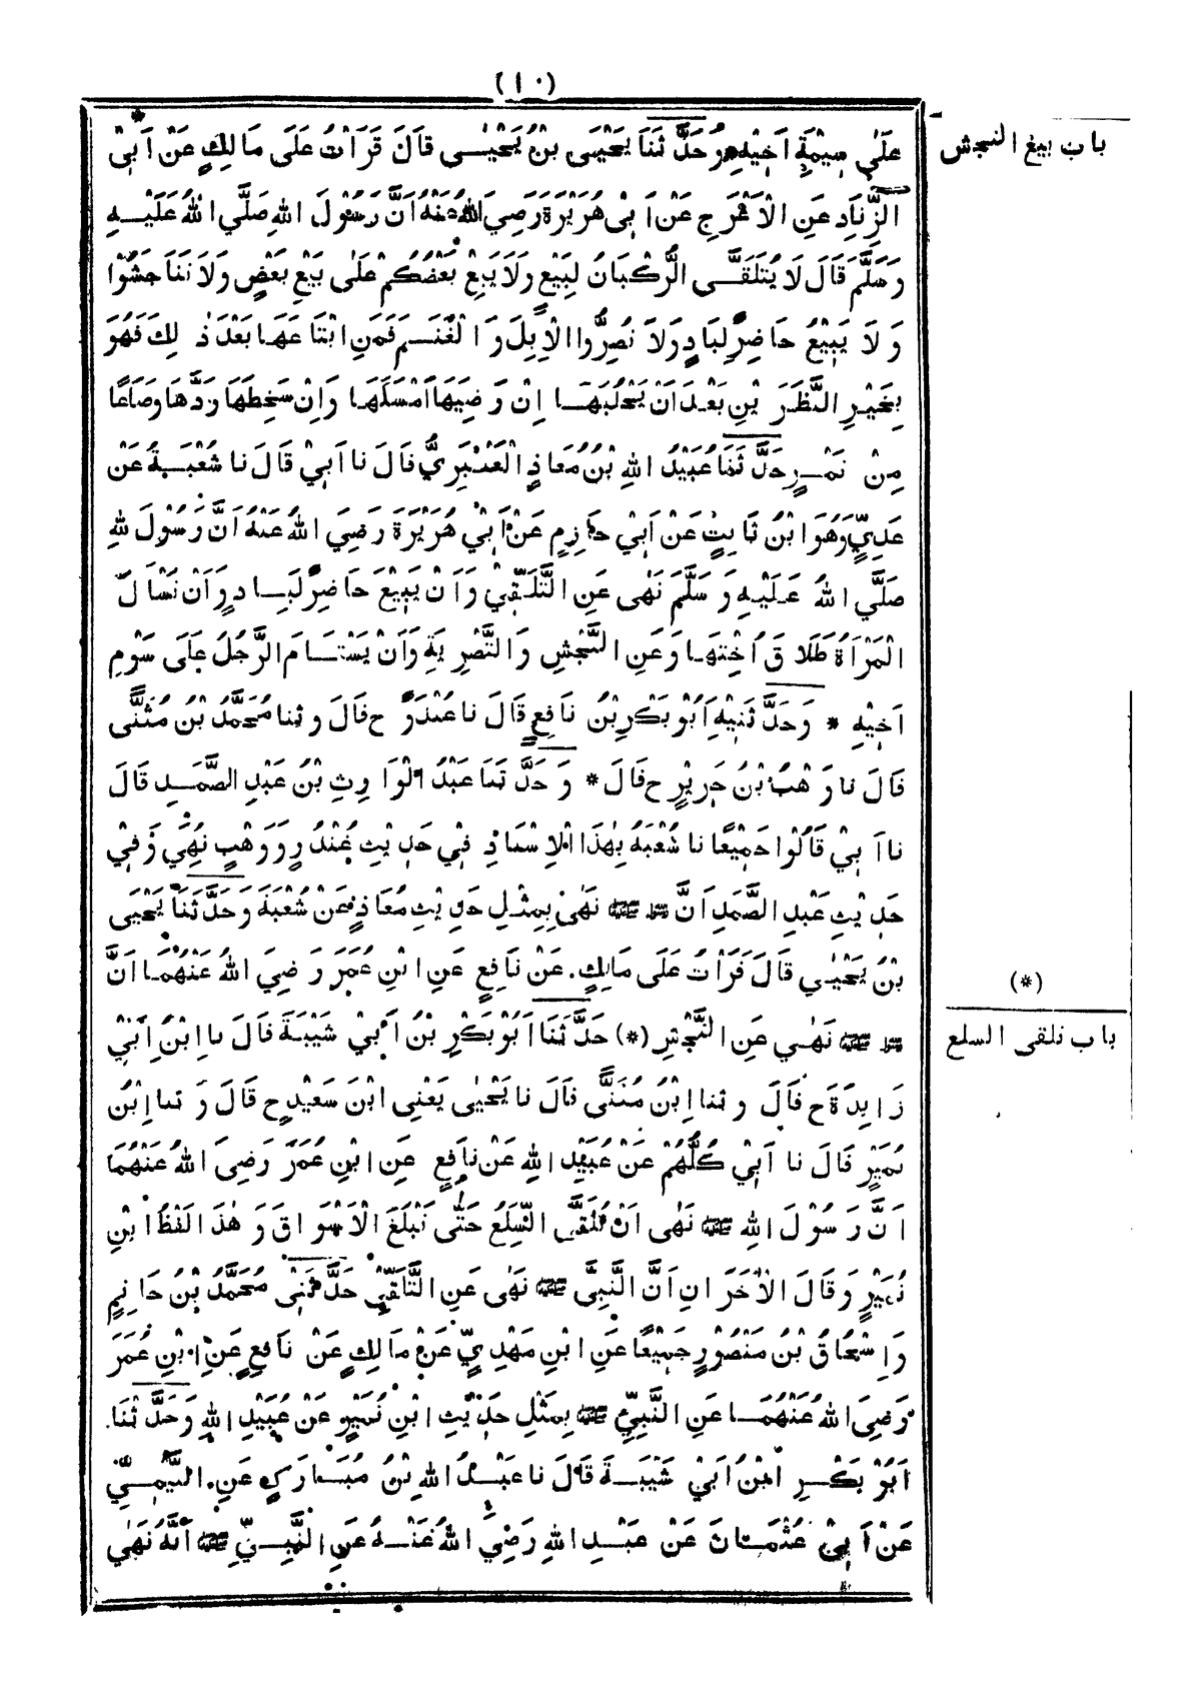 (١٠)
باب بيغ النجش
عَلٰى سِيْمَةِ اَخِيْهِ وَحَدَّ ثَنَا يَحْيَى بْنُ يُحْيٰى قَالَ قَرَاْتُ عَلَى مَالِكٍ عَنْ اَبِىْ
الزِّنَادِ عَنِ الْاَعْرَجِ عَنْ اَبِىْ هُرَيْرَةَ رَضِيَ اللهُ عَنْهُ اَنَّ رَسُوْلَ اللهِ صَلَّي اللهُ عَلَيْهِ
وَسَلَّمَ قَالَ لَا يُتَلَقَّى الرُّكْبَانُ لِبَيْعٍ وَلَا يَبِعْ بَعْضُكُمْ عَلٰى بَيْعِ بَعْضٍ وَلَا تَنَاجَشُوْا
وَلَا يَبِيْعُ حَاضِرٌ لِبَادٍ وَلَا تُصِرُّوا الْاِبِلَ وَالْغَنَمَ فَمَنِ ابْتَا عَهَا بَعْدَ ذٰ لِكَ فَهُوَ
بِخَيْرِ النَّظَرَ يْنِ بَعْدَ اَنْ يَحْلُبَهَا اِنْ رَضِيَهَا اَمْسَكَهَا وَاِنْ سَخِطَهَا رَدَّهَا وَصَاعًا
مِنْ تَمْرٍ حَدَّ ثَنَا عُبَيْدُ اللهِ بْنُ مُعَاذٍ الْعَنْبَرِيُّ قَالَ نا اَبِيْ قَالَ نا شُعْبَةُ عَنْ
عَدِيٍّ وَهُوَ ابْنُ ثَابِتٍ عَنْ اَبِيْ حَازِمٍ عَنْ اَبِيْ هُرَيْرَةَ رَضِيَ اللهُ عَنْهُ اَنَّ رَسُوْلَ للهِ
صَلَّي اللهُ عَلَيْهِ وَ سَلَّمَ نَهٰى عَنِ التَّلَقِّيْ وَاَنْ يَبِيْعَ حَاضِرٌ لِبَادٍ وَاَنْ تَسْأَلَ
الْمَرْأَةُ طَلَاقَ اُخْتِهَا وَعَنِ النَّجْشِ وَالتَّصْرِيَةِ وَاَنْ يَسْتَامَ الرَّجُلُ عَلَى سَوْمِ
اَخِيْهِ * وَحَدَّ ثَنِيْهِ اَبُوْ بَكْرِ بْنُ نَافِعٍ قَالَ نا غُنْدَرٌ ح قَالَ و ثنا مُحَمَّدُ بْنُ مُثَنَّى
قَالَ نا وَهْبُ بْنُ جَرِيْرٍ ح قَالَ * وَ حَدَّ ثَنَا عَبْدُ الْوَا رِثِ بْنُ عَبْدِ الصَّمَدِ قَالَ
نا اَبِيْ قَالُوْا جَمِيْعًا نا شُعْبَةُ بِهٰذَا الْاِسْنَادِ فِيْ حَدِيْثِ غُنْدُرٍ وَ وَهْبٍ نُهِيَ وَفِيْ
حَدِيْثِ عَبْدِ الصَّمَدِ اَنَّ نَهٰى بِمِثْلِ حَدِيْثِ مُعَاذٍ عَنْ شُعْبَةَ وَحَدَّ ثَنَا يَحْيَى
بْنُ يَحْيٰى قَالَ قَرَأْتُ عَلَى مَالِكٍ عَنْ نَافِعٍ عَنِ ابْنِ عُمَرَ رَضِيَ اللهُ عَنْهُمَا اَنَّ
(*)
نَهٰى عَنِ النَّجْشِ (*) حَدَّ ثَنَا اَبُوْ بَكْرِ بْنُ اَبِيْ شَيْبَةَ قَالَ نا اِبْنُ اَبِيْ
باب تلقى السلع
زَا ئِدَةَ ح قَالَ و ثنا اِبْنُ مُثَنَّى قَالَ نا يَحْيٰى يَعْنِى ابْنَ سَعِيْدٍ ح قَالَ وَ ثنا اِبْنُ
نُمَيْرٍ قَالَ نا اَبِيْ كُلُّهُمْ عَنْ عُبَيْدِ اللهِ عَنْ نَافِعٍ عَنِ ابْنِ عُمَرَ رَضِيَ اللهُ عَنْهُمَا
اَنَّ رَسُوْلَ اللهِ نَهٰى اَنْ تُتَلَقَّى السِّلَعُ حَتّٰى تَبْلُغَ الْاَسْوَاقَ وَ هٰذَ الَفْظُ ابْنِ
نُمَيْرٍ وَقَالَ الْاٰخَرَانِ اَنَّ النَّبِىَّ نَهٰى عَنِ التَّلَقِّيْ حَدَّ ثَنِيْ مُحَمَّدُ بْنُ حَاتِمٍ
وَاِسْحَاقُ بْنُ مَنْصُوْرٍ جَمِيْعًا عَنِ ابْنِ مَهْدِيٍّ عَنْ مَالِكٍ عَنْ نَافِعٍ عَنِ ابْنِ عُمَرَ
رَضِيَ اللهُ عَنْهُمَا عَنِ النَّبِيِّ بِمِثْلِ حَدِيْثِ ابْنِ نُمَيْرٍ عَنْ عُبَيْدِ اللهِ وَحَدَّ ثَنَا
اَبُوْ بَكْرِ ابْنُ اَبِيْ شَيْبَةَ قَالَ نا عَبْدُ اللهِ بْنُ مُبَارَكٍ عَنِ التَّيْمِيِّ
عَنْ اَبِيْ عُثْمَانَ عَنْ عَبْدِ اللهِ رَضِيَ اللهُ عَنْهُ عَنِ النَّبِيِّ اَنَّهُ نَهٰى